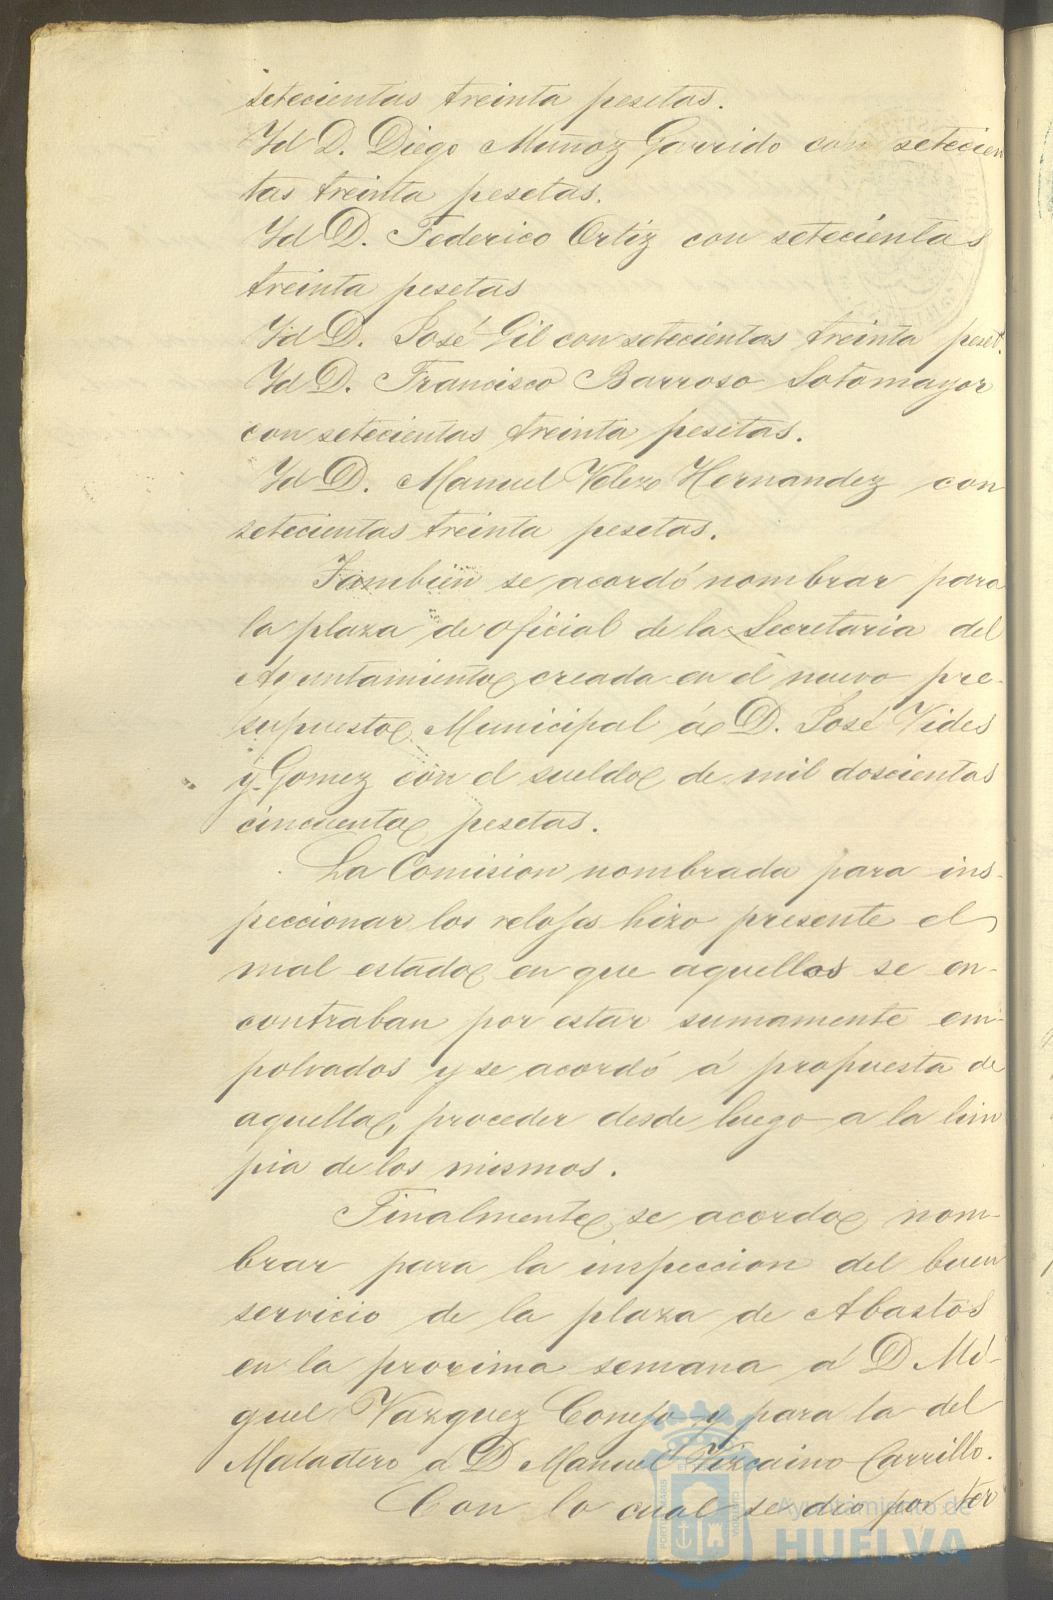 setecientas treinta pesetas.
Yd D. Diego Muñoz Garrido con setecien
tas treinta pesetas.
Yd D. Federico Ortiz con setecientas
treinta pesetas
Yd D. José Gil con setecientas treinta peset.
Yd D. Francisco Barroso Sotomayor
con setecientas treinta pesetas.
Yd D. Manuel Hernandez con
setecientas treinta pesetas.
Tambien se acordó nombrar para
la plaza de oficial de la Secretaria del
Ayuntamiento creada en el nuevo pre-
supuesto Municipal á D. José Vides
y Gomez con el sueldo de mil doscientas
cincuenta pesetas.
La Comision nombrada para ins-
peccionar los relojes hizo presente el
mal estado en que aquellos se en-
contraban por estar sumamente em-
polvados y se acordó á propuesta de
aquella, proceder desde luego a la lim
pia de los mismos.
Finalmente se acordo nom-
brar para la inspeccion del buen
servicio de la plaza de Abastos
en la proxima semana á D Mi-
guel Vazquez Conejo y para la del
Matadero a D Manuel Vizcaino Carrillo.
Con lo cual se dio por ter
Ayuntamiento de
HUELVA